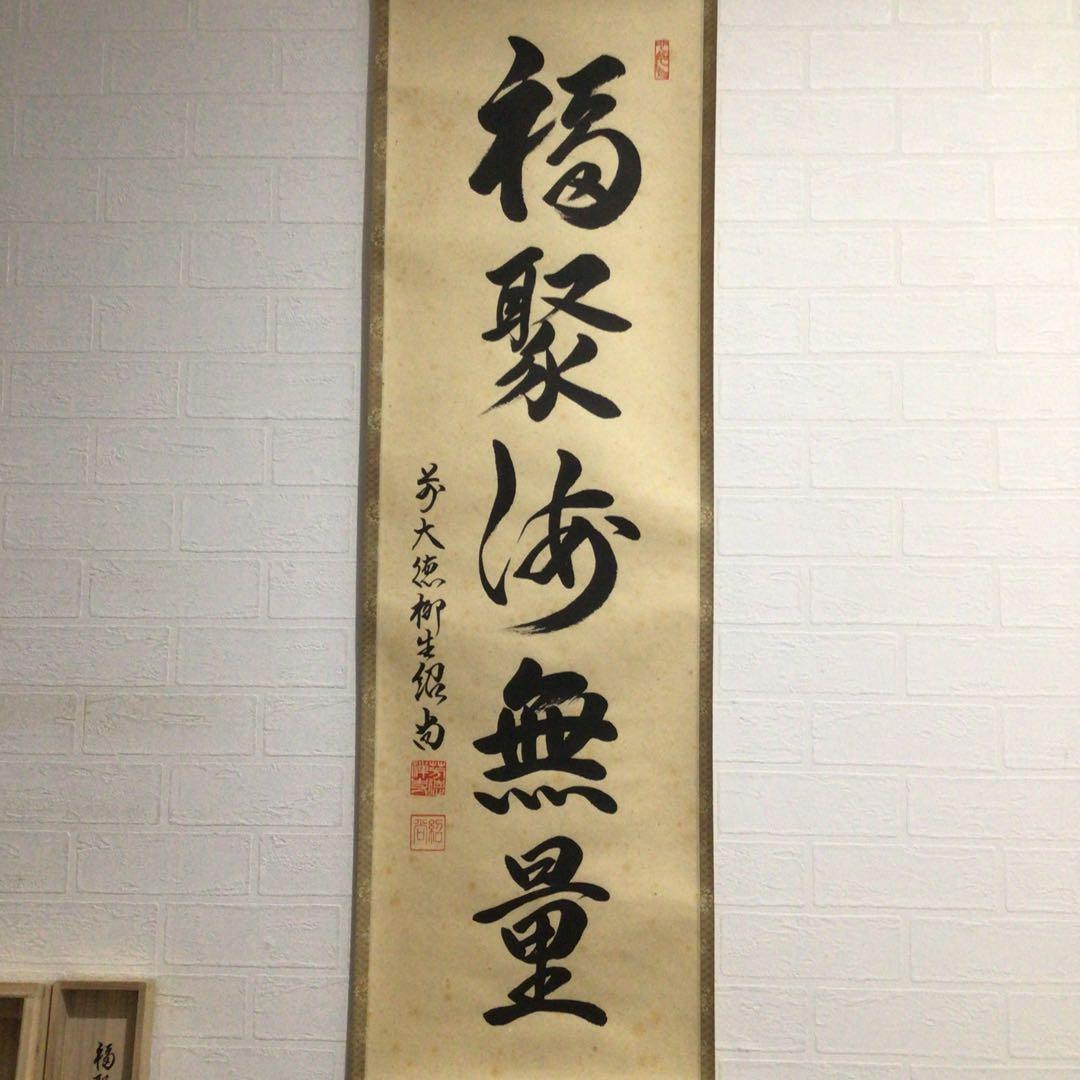 福聚海無量
前大徳柳生紹尚
紹尚
福聚